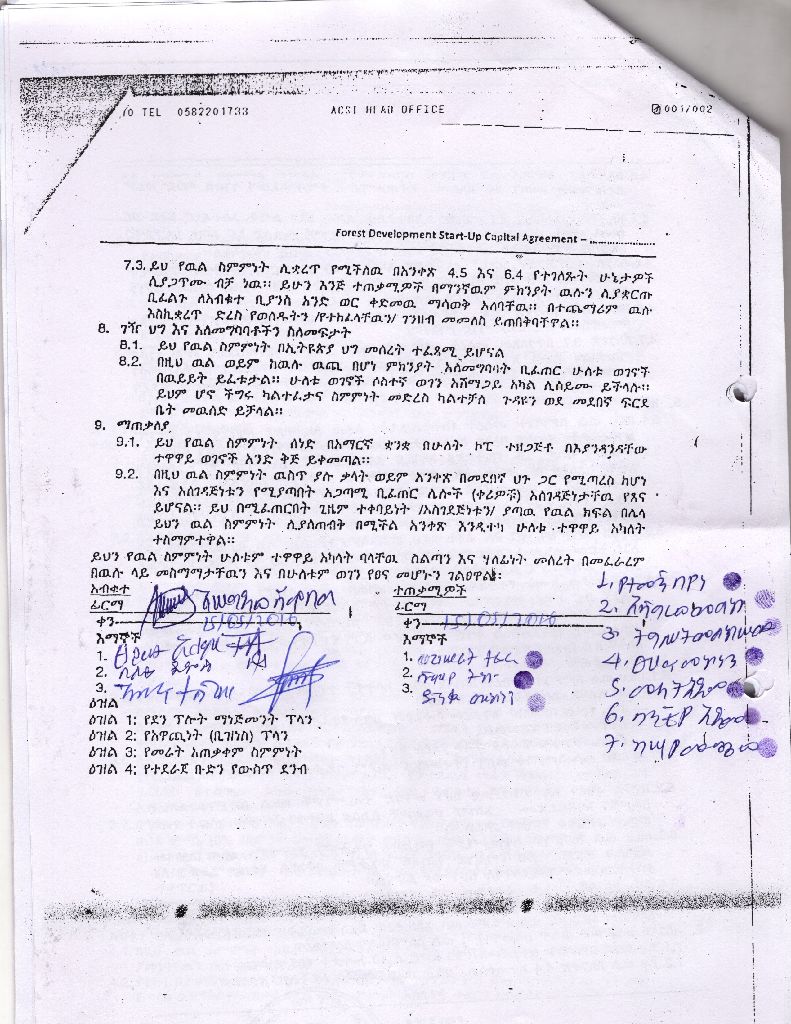 TO TEL 0582201733 ACSI HEAD OFFICE 001/002
Forest Development Start-Up Capital Agreement – ....................
7.3. ይህ የዉል ስምምነት ሊቋረጥ የሚችለዉ በአንቀጽ 4.5 እና 6.4 የተገለጹት ሁኔታዎች
ሲያጋጥሙ ብቻ ነዉ፡፡ ይሁን እንጅ ተጠቃሚዎች በማንኛዉም ምክንያት ዉሉን ሊያቋርጡ
ቢፈልጉ ለአብቁተ ቢያንስ አንድ ወር ቀድመዉ ማሳወቅ አለባቸዉ፡፡ በተጨማሪም ዉሉ
እስኪቋረጥ ድረስ የወሰዱትን /የተከፈላቸዉን/ ገንዘብ መመለስ ይጠበቅባቸዋል፡፡
8. ገዥ ህግ እና አለመግባባቶችን ስለመፍታት
8.1. ይህ የዉል ስምምነት በኢትዮጵያ ህግ መሰረት ተፈጻሚ ይሆናል
8.2. በዚህ ዉል ወይም ከዉሉ ዉጪ በሆነ ምክንያት አለመግባባት ቢፈጠር ሁለቱ ወገኖች
በዉይይት ይፈቱታል፡፡ ሁለቱ ወገኖች ሶስተኛ ወገን አሸማጋይ አካል ሊሰይሙ ይችላሉ፡፡
ይህም ሆኖ ችግሩ ካልተፈታና ስምምነት መድረስ ካልተቻለ ጉዳዩን ወደ መደበኛ ፍርድ
ቤት መዉሰድ ይቻላል፡፡
9. ማጠቃለያ
9.1. ይህ የዉል ስምምነት ሰነድ በአማርኛ ቋንቋ በሁለት ኮፒ ተዘጋጅቶ በእያንዳንዳቸው
ተዋዋይ ወገኖች አንድ ቅጅ ይቀመጣል፡፡
9.2. በዚህ ዉል ስምምነት ዉስጥ ያሉ ቃላት ወይም አንቀጽ በመደበኛ ህጉ ጋር የሚጣረስ ከሆነ
እና አስገዳጅነቱን የሚያጣበት አጋጣሚ ቢፈጠር ሌሎች (ቀሪዎቹ) አስገዳጅነታቸዉ የጸና
ይሆናል፡፡ ይህ በሚፈጠርበት ጊዜም ተቀባይነት /አስገዳጅነቱን/ ያጣዉ የዉል ክፍል በሌላ
ይህን ዉል ስምምነት ሊያስጠብቅ በሚችል አንቀጽ እንዲተካ ሁለቱ ተዋዋይ አካላት
ተስማምተዋል፡፡
ይህን የዉል ስምምነት ሁለቱም ተዋዋይ አካላት ባላቸዉ ስልጣን እና ሃላፊነት መሰረት በመፈራረም
በዉሉ ላይ መስማማታቸዉን እና በሁለቱም ወገን የፀና መሆኑን ገልፀዋል፡፡
አብቁተ ተጠቃሚዎች
ፊርማ ፊርማ
ቀን 15/05/2016 ቀን 15/05/2016
እማኞች እማኞች
1. 1.
2. 2.
3. 3.
ዕዝል
ዕዝል 1: የደን ፕሎት ማነጅመንት ፕላን
ዕዝል 2: የአዋጪነት (ቢዝነስ) ፕላን
ዕዝል 3: የመሬት አጠቃቀም ስምምነት
ዕዝል 4: የተደራጀ ቡድን የውስጥ ደንብ